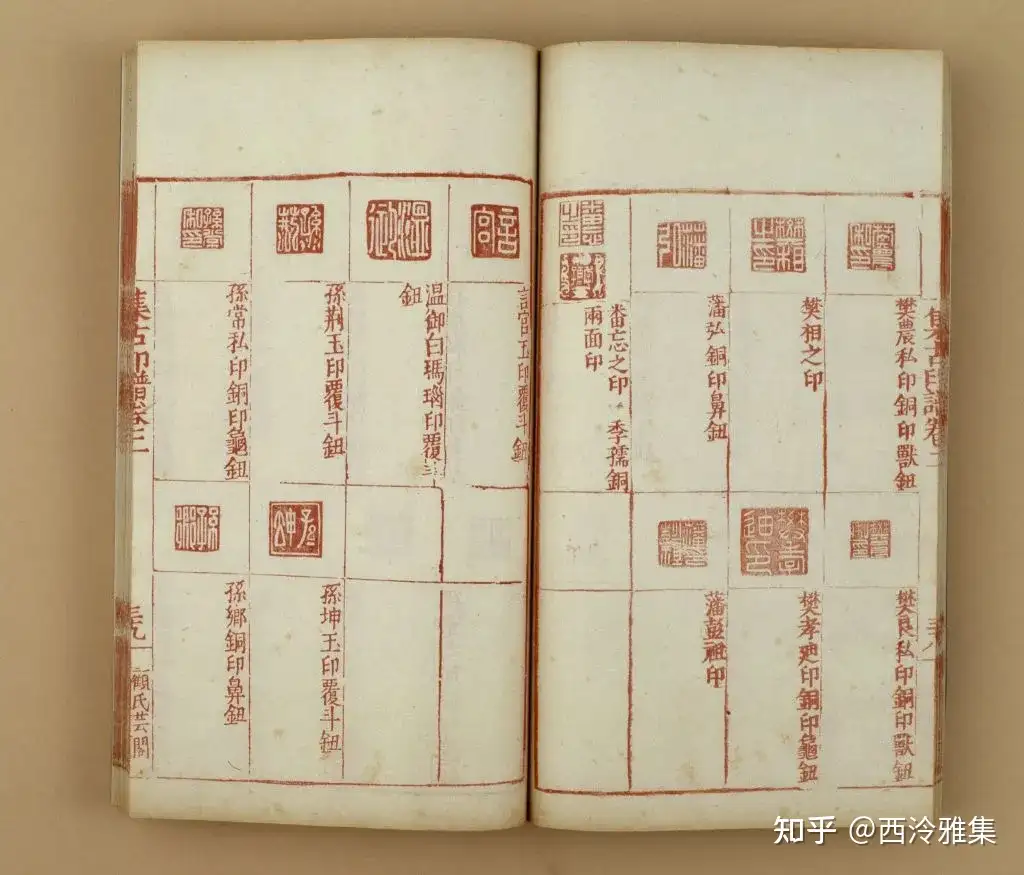 集古印譜卷二
樊農私印銅印獸鈕
樊相之印
藩弘銅印鼻鈕
番忘之印 季孺銅
兩面印
樊良私印銅印獸鈕
樊孝迪印銅印龜鈕
藩彭祖印
言宮玉印覆斗鈕
温御白瑪瑙印覆斗
鈕
孫荆玉印覆斗鈕
孫常私印銅印龜鈕
孫坤玉印覆斗鈕
孫鄉銅印鼻鈕
集古印譜卷二
三九
顧氏芸閣
知乎 @西泠雅集